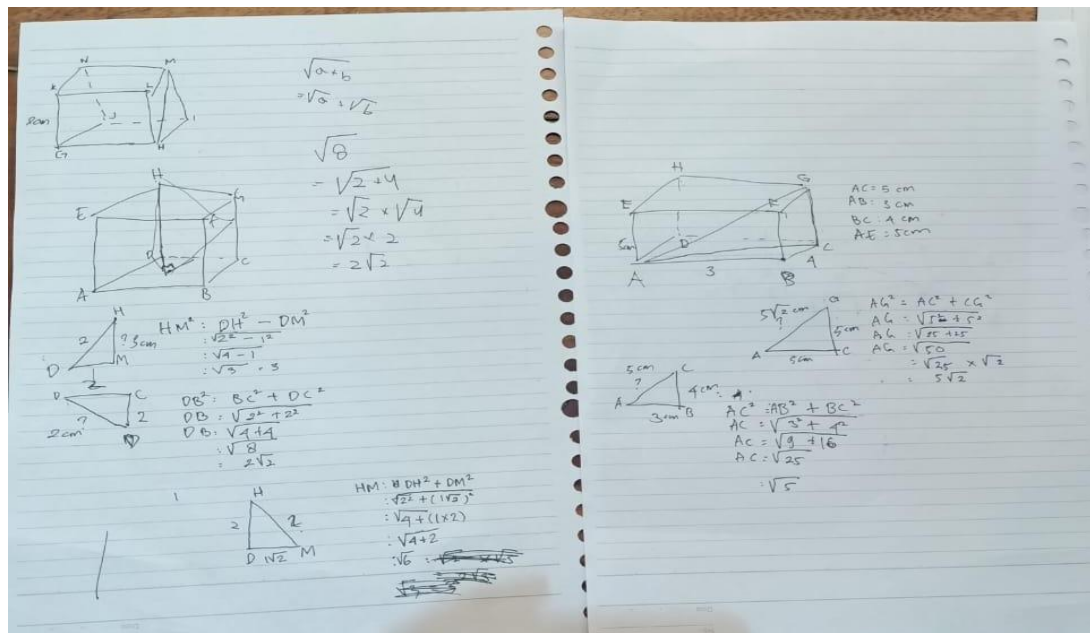 N M
K L
2cm J I
G H
√a×b
= √a × √b
√8
= √2×4
= √2 × √4
= √2 × 2
= 2√2
H
G
E F
D C
M
A B
H
2 ? 3cm
D M
1
HM² : DH² - DM²
: √2² - 1²
: √4 - 1
: √3 . 3
D C
? 2
2cm
DB² : BC² + DC²
DB : √2² + 2²
DB : √4+4
: √8
: 2√2
1
H
2 2
D 1√2 M
HM : DH² + DM²
: √2² + (1√2)²
: √4+(1×2)
: √4+2
: √6
H G
E F
5cm D C
A 3 B 4
AC = 5 cm
AB : 3 cm
BC : 4 cm
AE = 5cm
5√2 cm G
? 5cm
A 5cm C
AG² = AC² + CG²
AG = √5² + 5²
AG : √25 +25
AG = √50
= √25 × √2
: 5√2
5cm C
? 4cm
A 3cm B
AC² = AB² + BC²
AC = √3² + 4²
AC = √9 + 16
AC = √25
= √5